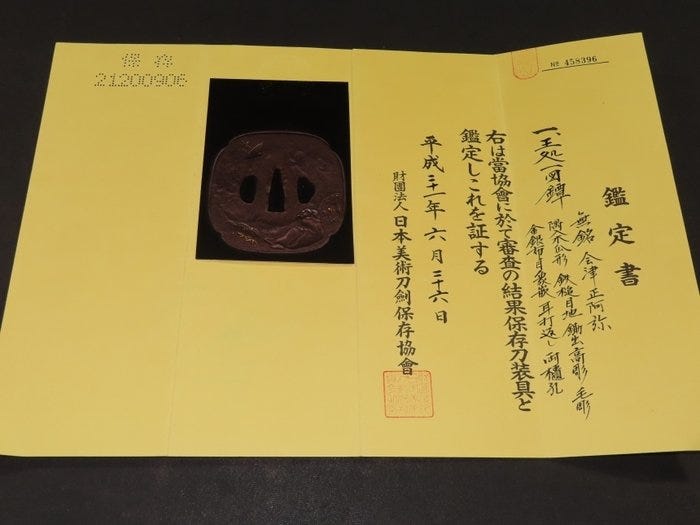 保存
21200906
№ 458396
鑑定書
一、王処一図鐔
無銘 会津正阿弥
隅木瓜形 鉄槌目地 鋤出高彫 毛彫
金銀布目象嵌 耳打返し 両櫃孔
右は當協會に於て審査の結果保存刀装具と
鑑定しこれを証する
平成二十一年六月二十六日
財團法人日本美術刀劍保存協會